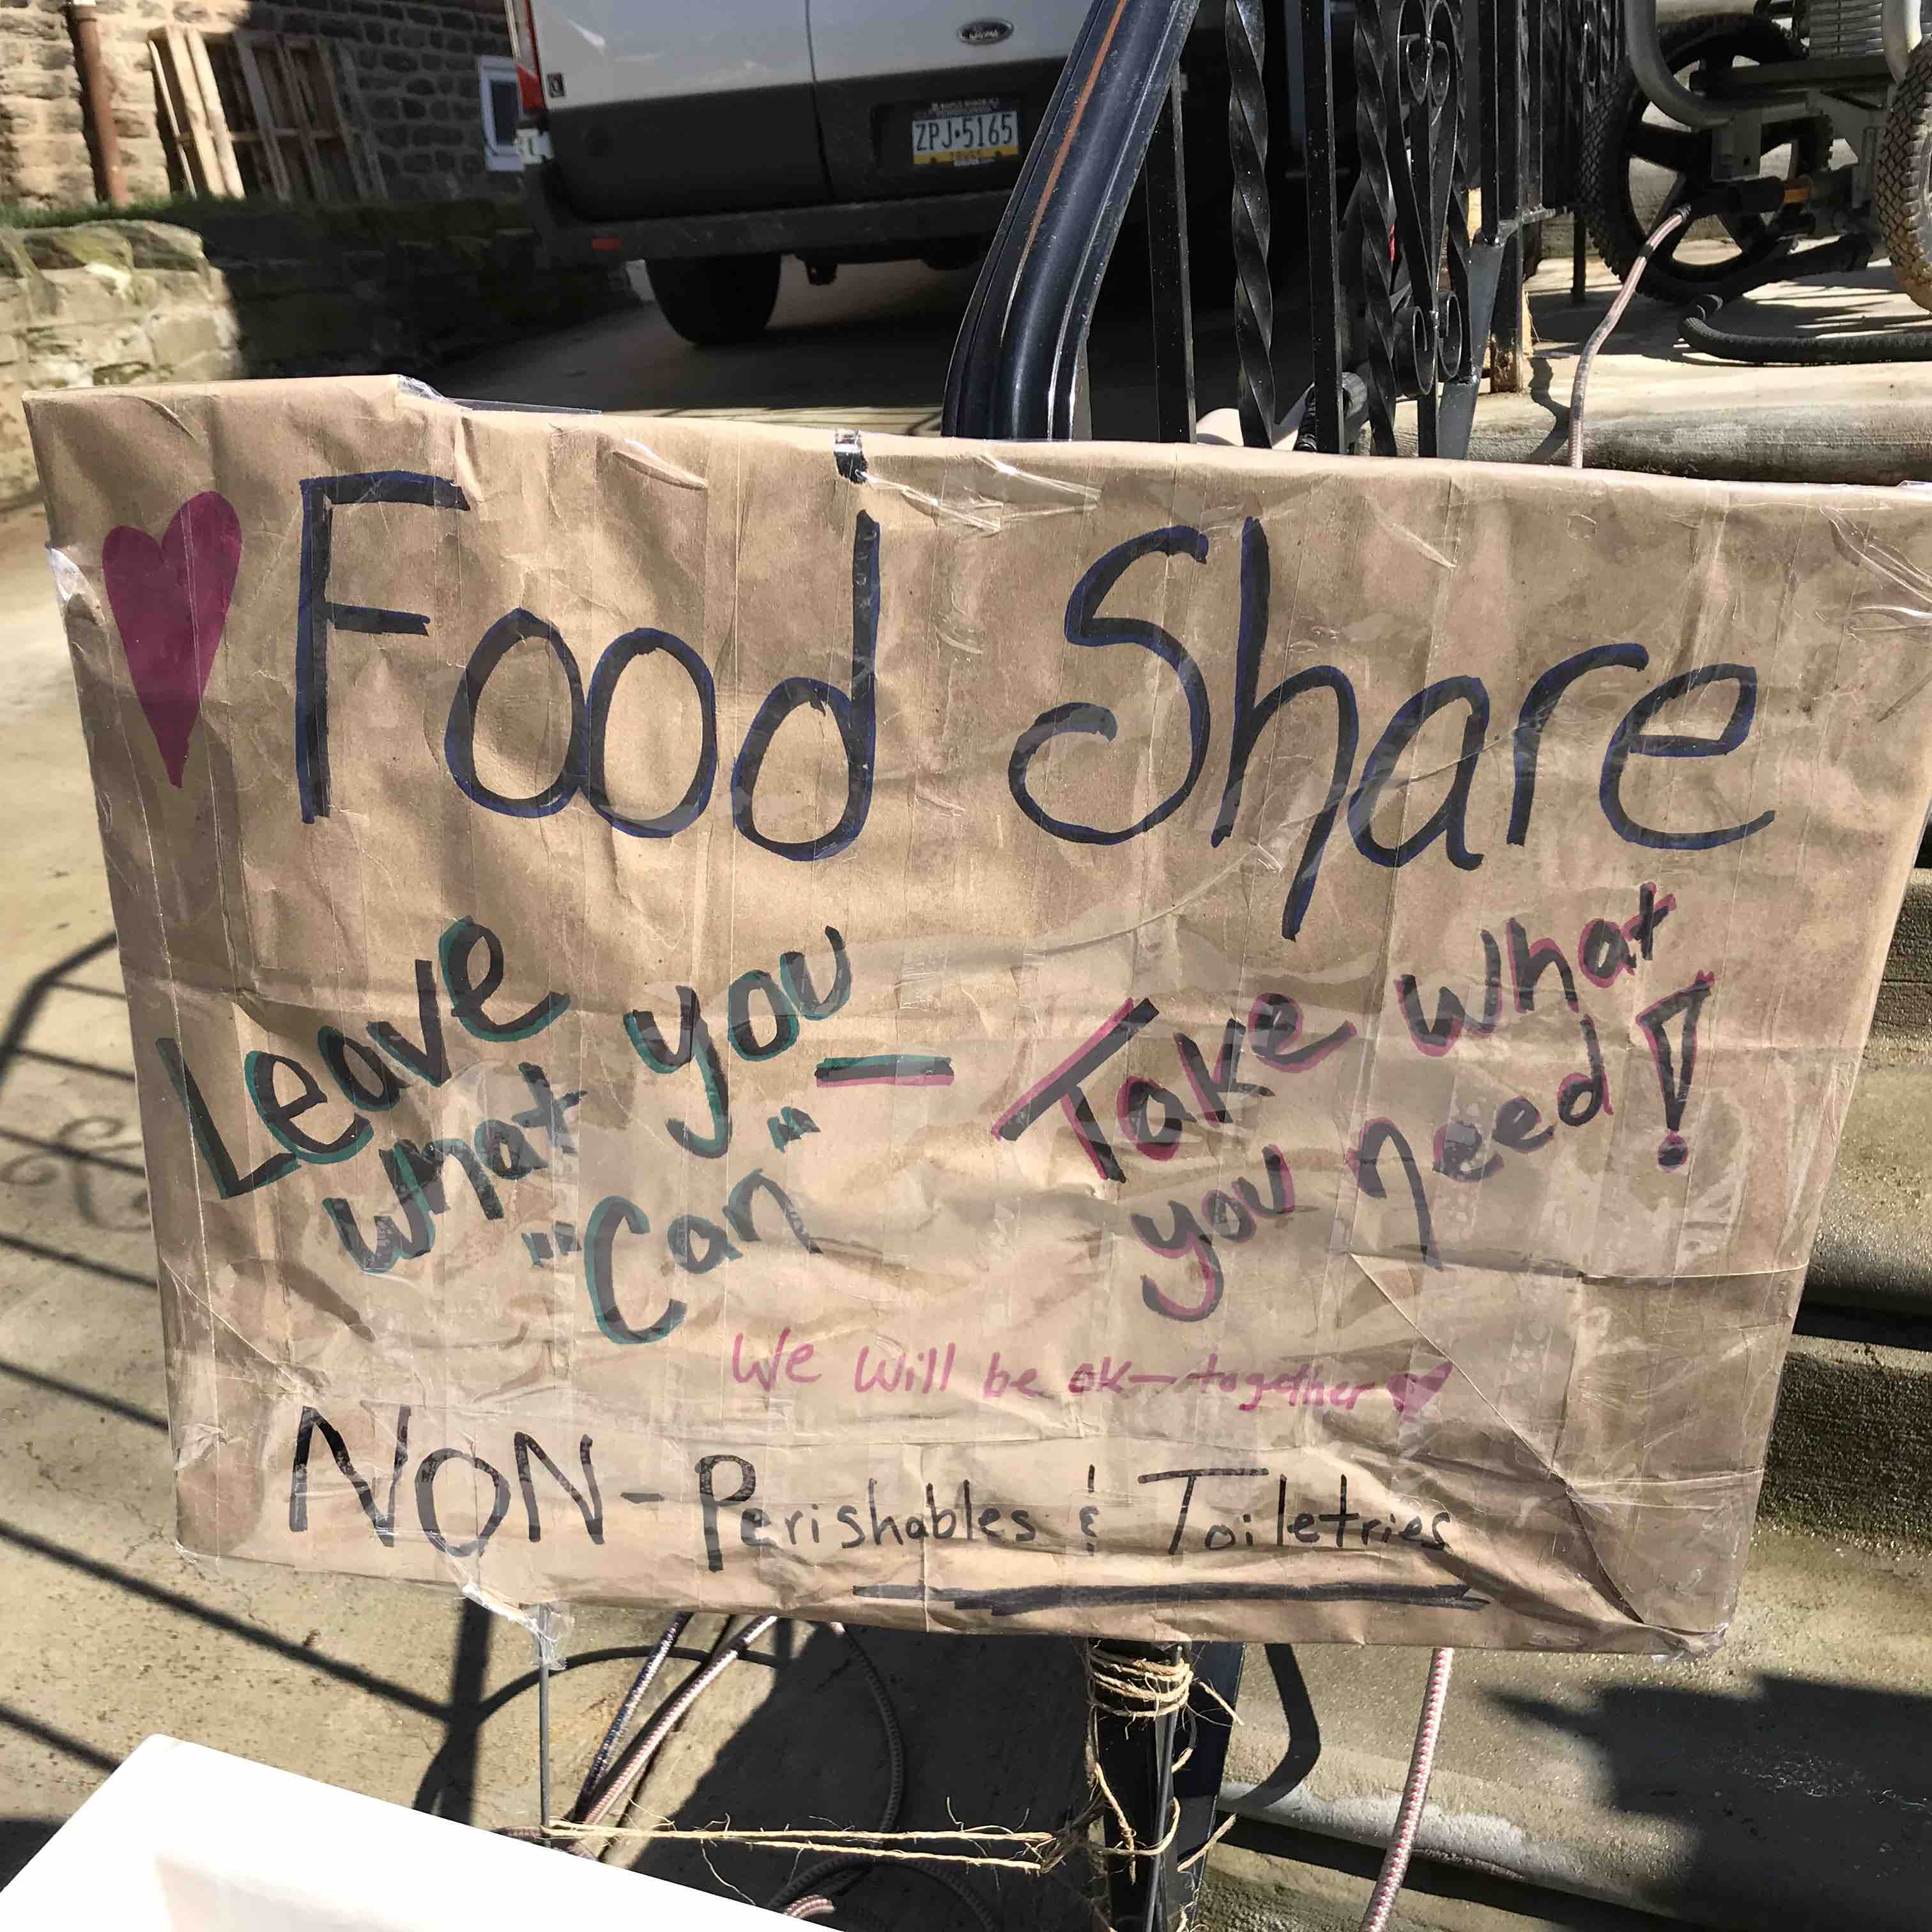 ZPJ·5165
Food Share
Leave
what you
"Can" — Take what
you need!
We will be ok— together
NON-Perishables & Toiletries